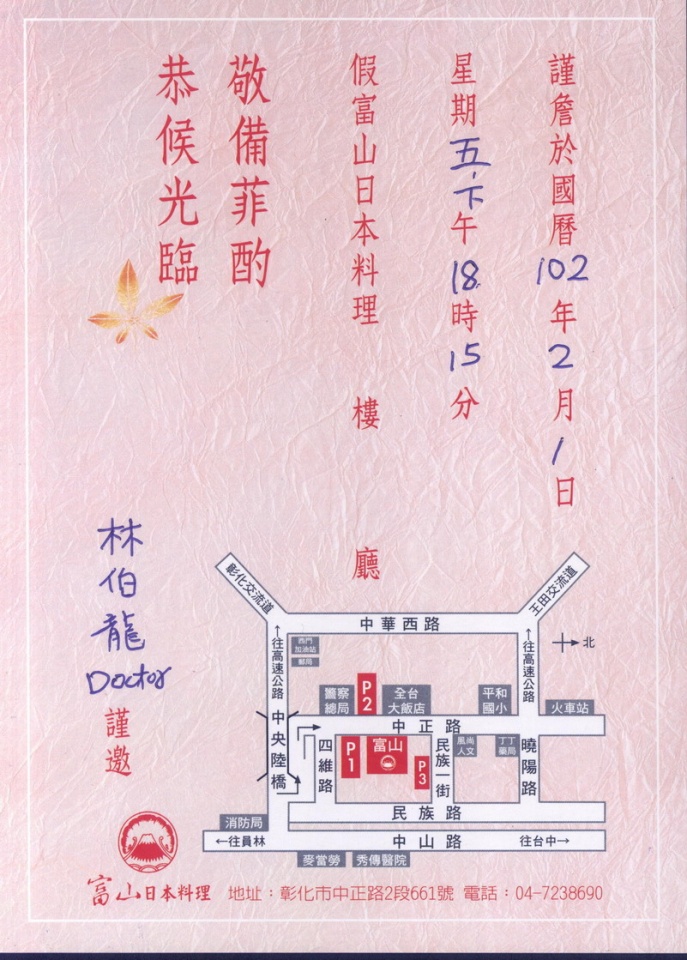 謹詹於國曆102年2月1日
星期五、下午18時15分
假富山日本料理 樓 廳
敬備菲酌
恭候光臨
林伯龍
Doctor
謹邀
彰化交流道
王田交流道
中華西路
←往高速公路
←往高速公路
北
西門
加油站
郵局
警察
總局
P2
全台
大飯店
平和
國小
火車站
中正路
中央陸橋
四維路
P1
富山
P3
民族一街
風尚
人文
丁丁
藥局
曉陽路
民族路
消防局
←往員林
中山路
往台中→
麥當勞
秀傳醫院
富山日本料理
地址：彰化市中正路2段661號 電話：04-7238690